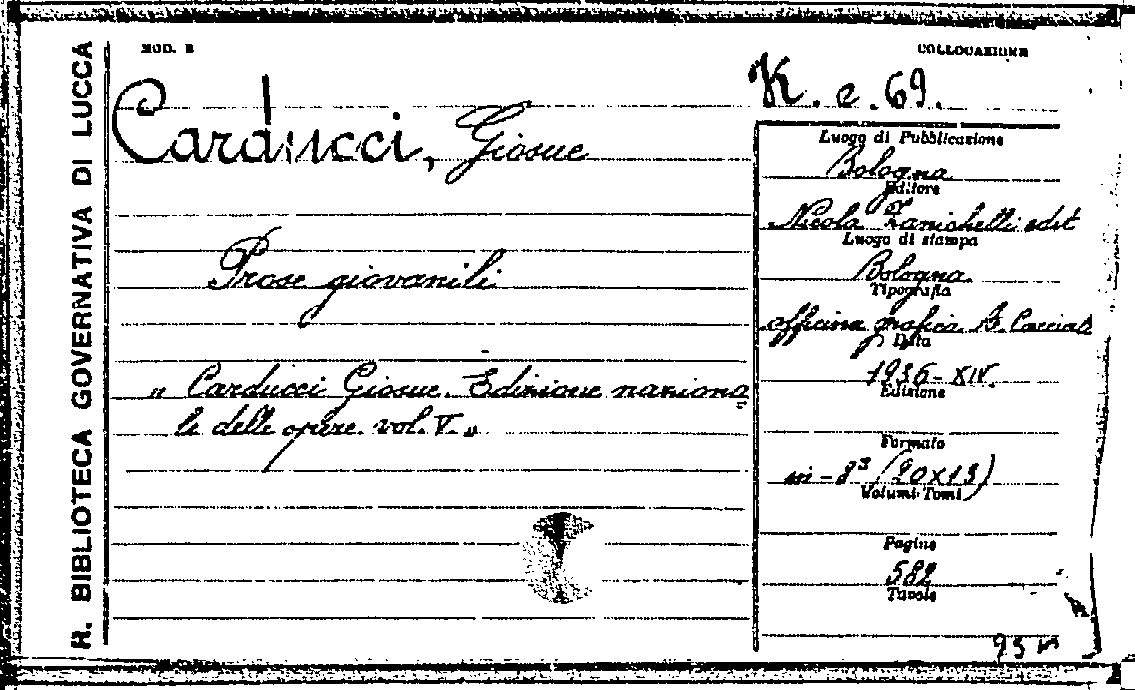 R. BIBLIOTECA GOVERNATIVA DI LUCCA
MOD. B
COLLOCAZIONE
K. e. 69.
Carducci, Giosue
Prose giovanili
" Carducci Giosue. Edizione naziona
le delle opere. vol. V. "
Luogo di Pubblicazione
Bologna
Editore
Nicola Zanichelli edit
Luogo di stampa
Bologna
Tipografia
officina grafica A. Cacciali
Data
1936-XIV.
Edizione
Formato
in-8° (20x13)
Volumi-Tomi
Pagine
582
Tavole